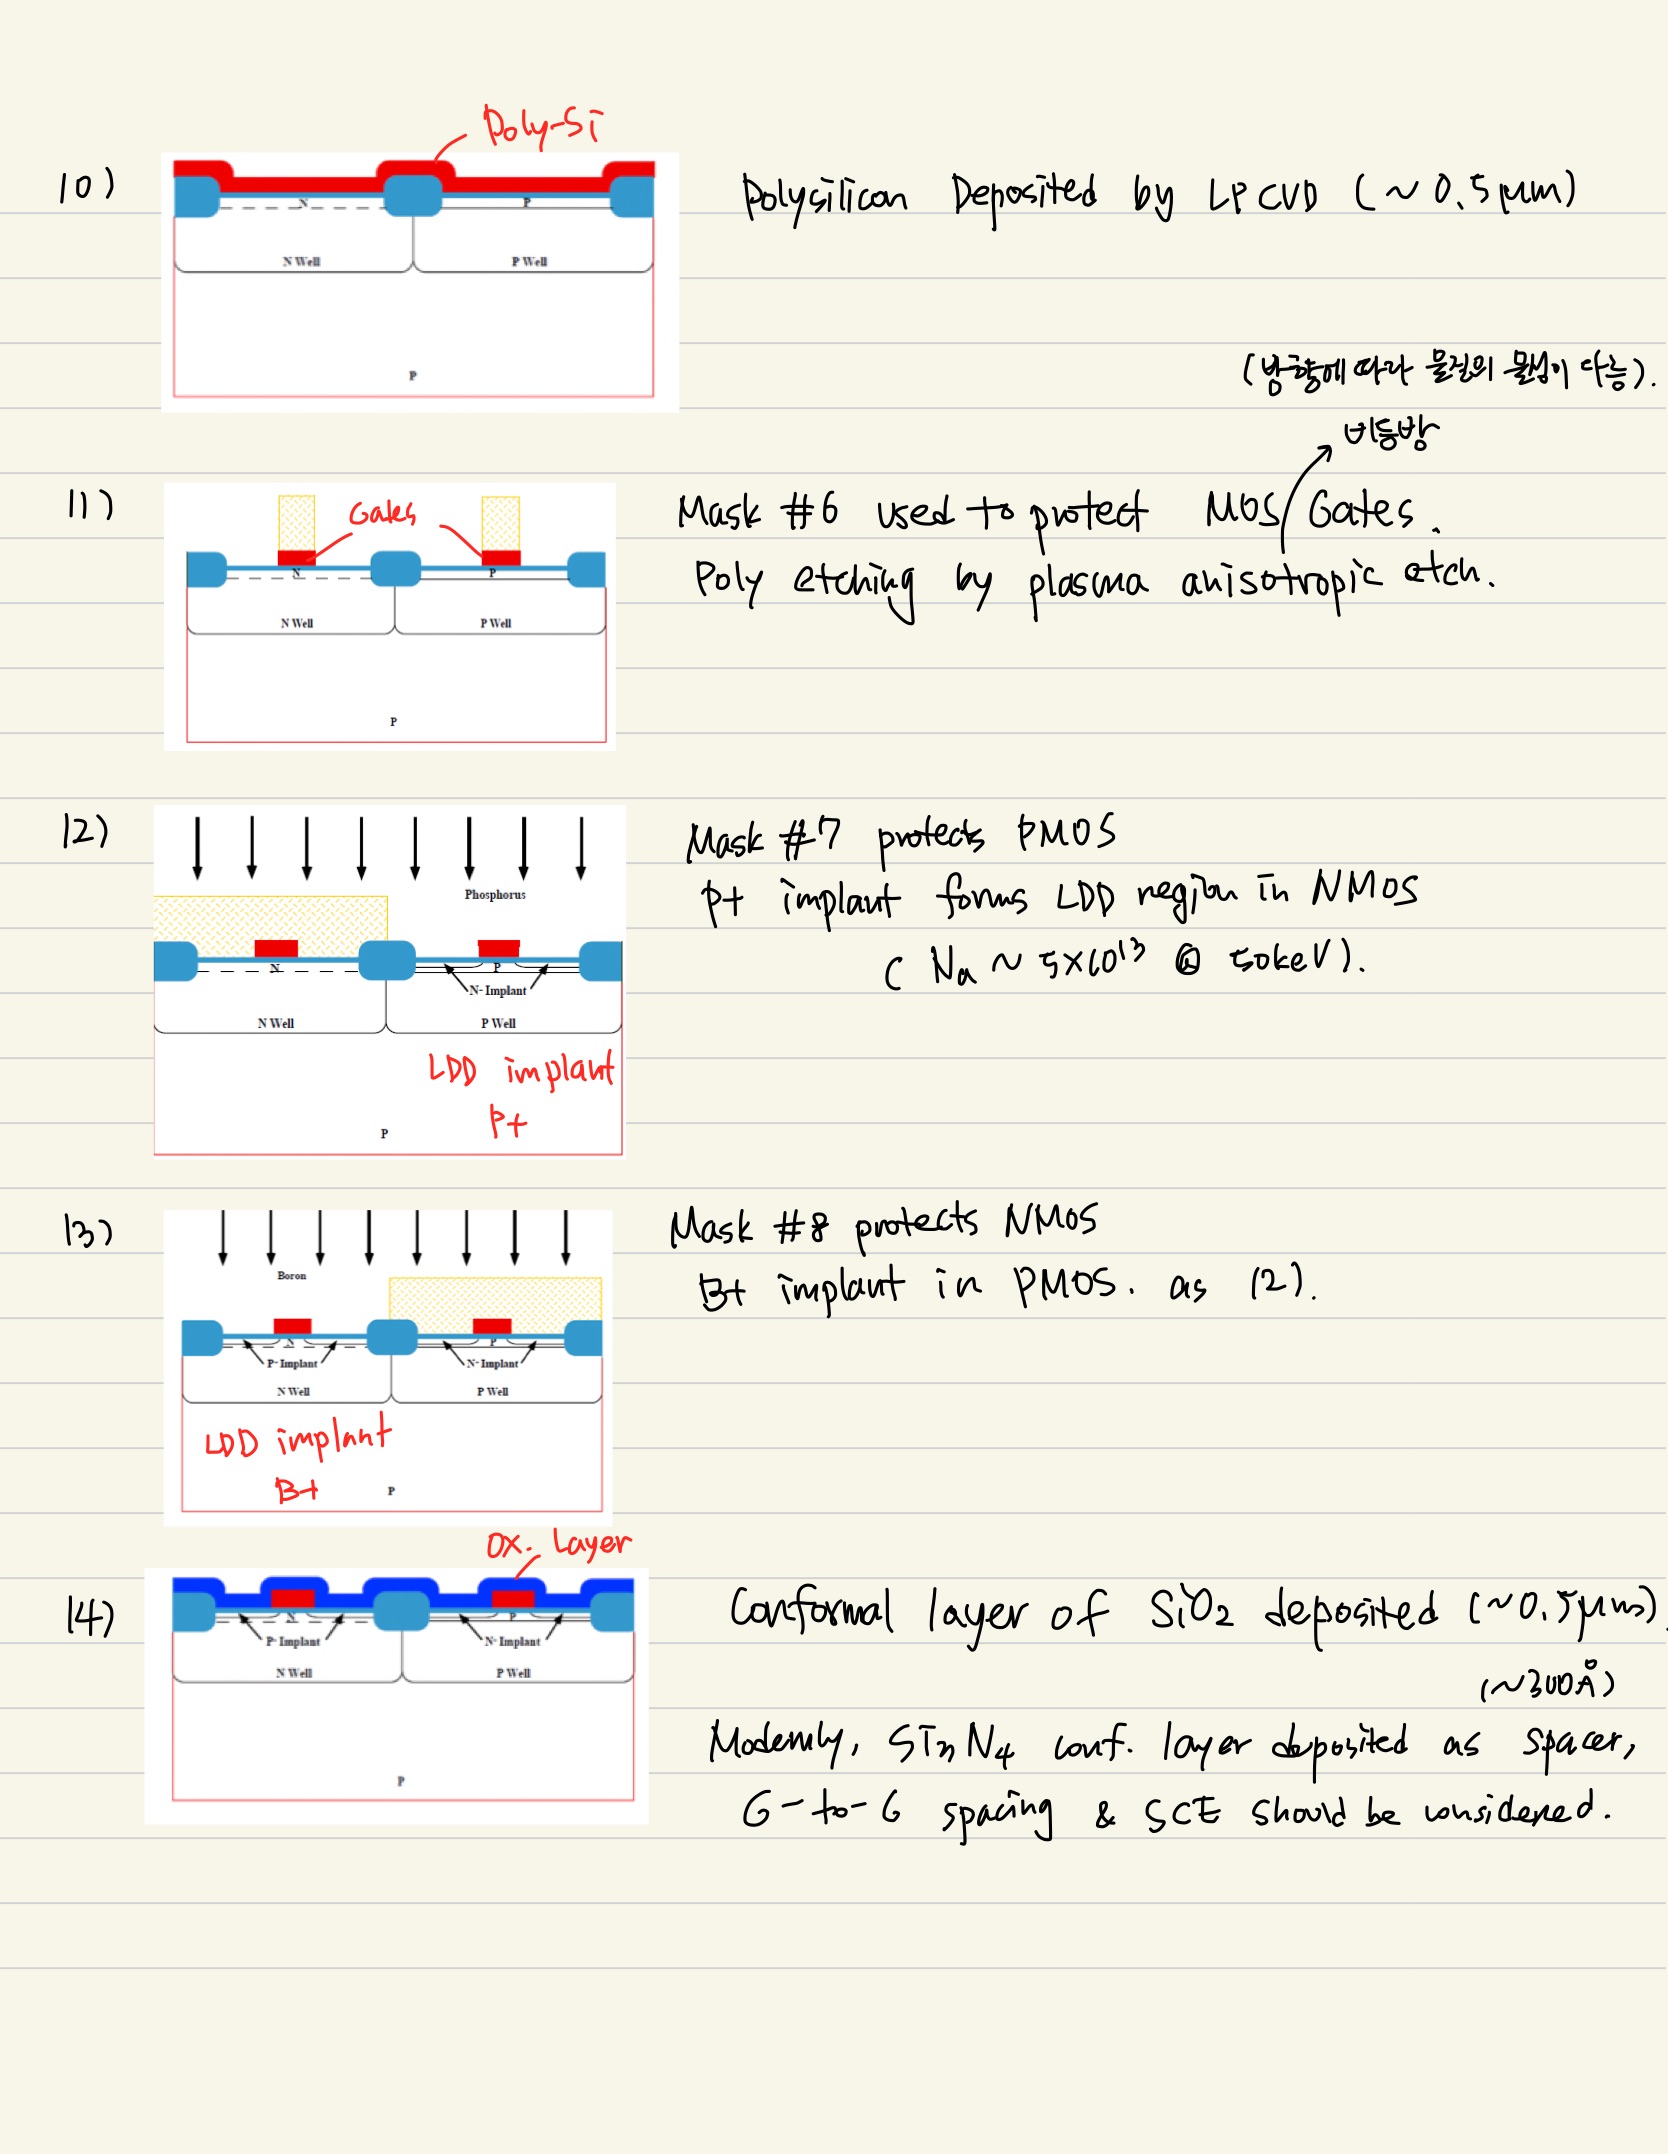 Poly-Si
10)
N
P
N Well
P Well
P
Polysilicon Deposited by LPCVD (~0.5μm)
(방향에 따라 물질의 물성이 다름).
비등방
11)
Gates
N
P
N Well
P Well
P
Mask #6 used to protect MOS Gates.
Poly etching by plasma anisotropic etch.
12)
Phosphorus
N
P
N- Implant
N Well
P Well
LDD implant
P+
P
Mask #7 protects PMOS
P+ implant forms LDD region in NMOS
( Na ~ 5×10¹³ @ 50keV).
13)
Boron
N
P
P- Implant
N- Implant
N Well
P Well
LDD implant
B+
P
Mask #8 protects NMOS
B+ implant in PMOS. as 12).
OX. Layer
14)
N
P
P- Implant
N- Implant
N Well
P Well
P
Conformal layer of SiO2 deposited (~0.5μm)
(~300Å)
Modernly, Si3N4 conf. layer deposited as spacer,
G-to-G spacing & SCE should be considered.